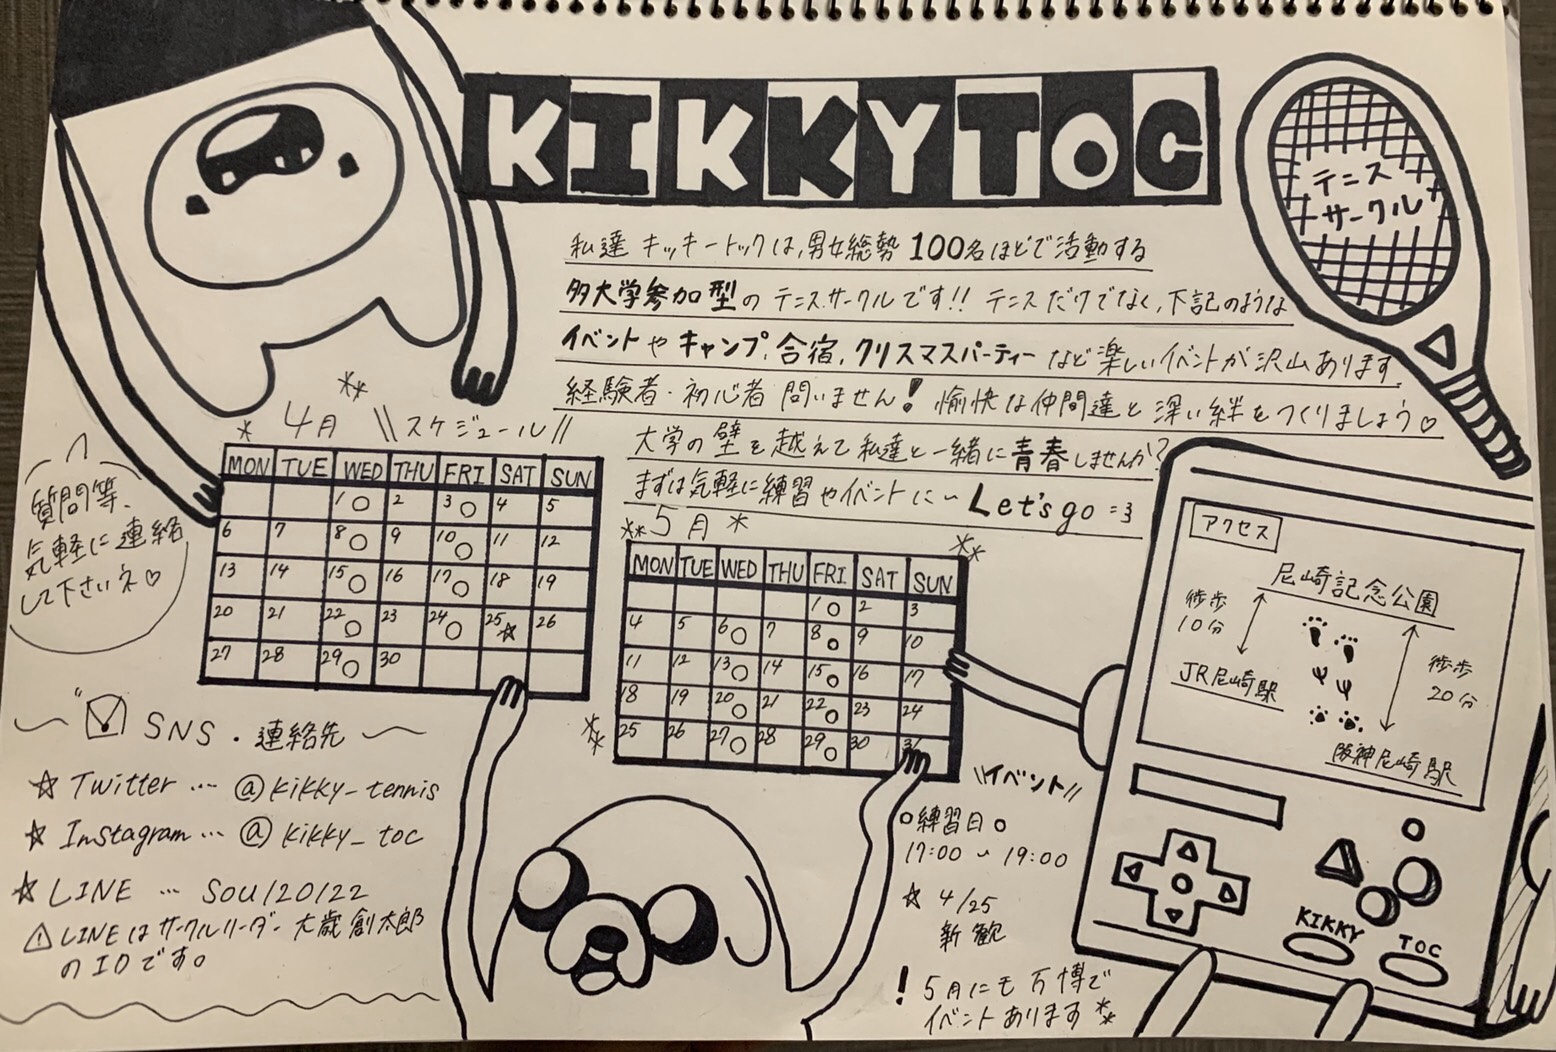 KIKKYTOC
テニス
サークル
私達 キッキートックは、男女総勢 100名ほどで活動する
多大学参加型の テニスサークルです!! テニスだけでなく、下記のような
イベントやキャンプ、合宿、クリスマスパーティーなど楽しいイベントが沢山あります
経験者・初心者 問いません! 愉快な仲間達と深い絆をつくりましょう♡
大学の壁を越えて私達と一緒に青春しませんか?
まずは気軽に練習やイベントに〜 Let's go =3
質問等、
気軽に連絡
して下さいネ♡
4月 \\スケジュール//
MON TUE WED THU FRI SAT SUN
1○ 2 3○ 4 5
6 7 8○ 9 10○ 11 12
13 14 15○ 16 17○ 18 19
20 21 22○ 23 24○ 25☆ 26
27 28 29○ 30
5月
MON TUE WED THU FRI SAT SUN
1○ 2 3
4 5 6○ 7 8○ 9 10
11 12 13○ 14 15○ 16 17
18 19 20○ 21 22○ 23 24
25 26 27○ 28 29○ 30 31
アクセス
尼崎記念公園
徒歩
10分
JR尼崎駅
徒歩
20分
阪神尼崎駅
KIKKY TOC
SNS・連絡先
☆ Twitter … @kikky_tennis
☆ Instagram … @kikky_toc
☆ LINE … sou120122
⚠ LINEはサークルリーダー 大歳 創太郎
のIDです。
\\イベント//
○練習日○
17:00〜19:00
☆ 4/25
新歓
! 5月にも万博で
イベントあります